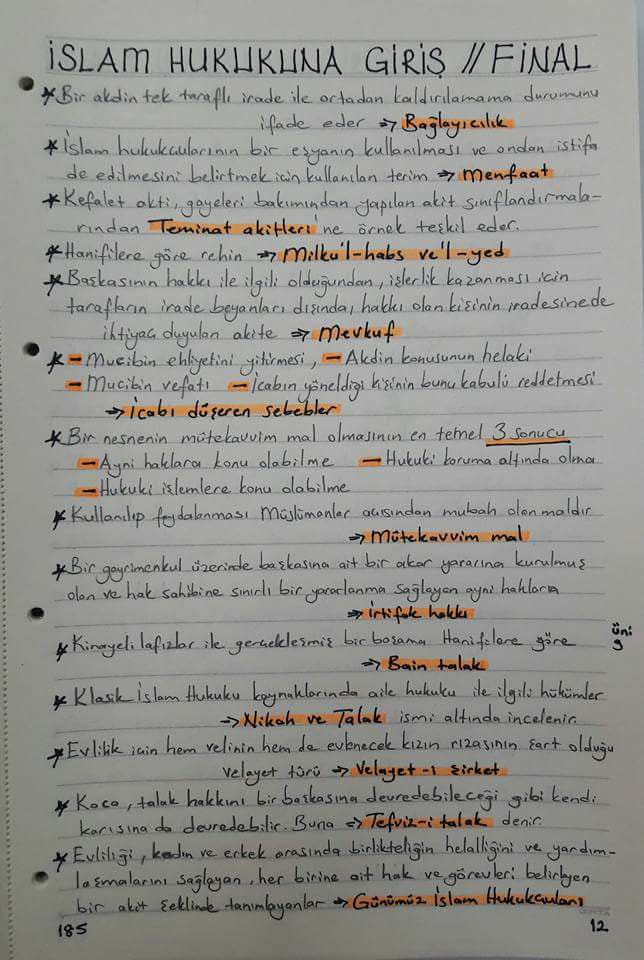 İSLAM HUKUKUNA GİRİŞ // FİNAL
* Bir akdin tek taraflı irade ile ortadan kaldırılamama durumunu
ifade eder → Bağlayıcılık
* İslam hukukçularının bir eşyanın kullanılması ve ondan istifa
de edilmesini belirtmek için kullanılan terim → Menfaat
* Kefalet akti, gayeleri bakımından yapılan akit sınıflandırmala-
rından Teminat akitleri'ne örnek teşkil eder.
* Hanifilere göre rehin → Milku'l-habs ve'l-yed
* Başkasının hakkı ile ilgili olduğundan, işlerlik kazanması için
tarafların irade beyanları dışında, hakkı olan kişinin iradesine de
ihtiyaç duyulan akite → Mevkuf
* - Mucibin ehliyetini yitirmesi, - Akdin konusunun helaki
- Mucibin vefatı - İcabın yöneldiği kişinin bunu kabulü reddetmesi
→ İcabı düşeren sebebler
* Bir nesnenin mütekavvim mal olmasının en temel 3 sonucu
- Ayni haklara konu olabilme - Hukuki koruma altında olma
- Hukuki işlemlere konu olabilme
* Kullanılıp faydalanması Müslümanlar açısından mubah olan maldır
→ Mütekavvim mal
* Bir gayrimenkul üzerinde başkasına ait bir akar yararına kurulmuş
olan ve hak sahibine sınırlı bir yararlanma sağlayan ayni haklara
→ İrtifak hakkı
* Kinayeli lafızlar ile gerçekleşmiş bir boşama Hanifilere göre
→ Bain talak
* Klasik İslam Hukuku kaynaklarında aile hukuku ile ilgili hükümler
→ Nikah ve Talak ismi altında incelenir.
* Evlilik için hem velinin hem de evlenecek kızın rızasının şart olduğu
velayet türü → Velayet-ı şirket
* Koca, talak hakkını bir başkasına devredebileceği gibi kendi
karısına da devredebilir. Buna → Tefviz-i talak denir.
* Evliliği, kadın ve erkek arasında birlikteliğin helalliğini ve yardım-
laşmalarını sağlayan, her birine ait hak ve görevleri belirleyen
bir akit şeklinde tanımlayanlar → Günümüz İslam Hukukçuları
185 12